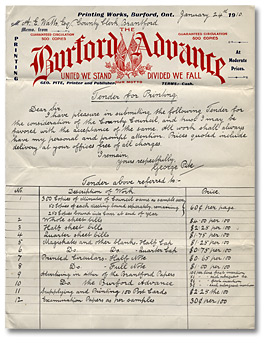 Printing Works, Burford, Ont. January 24th 1910
M A. E. Watts Esq. County Clerk Brantford
Memo. from
THE
GUARANTEED CIRCULATION
800 COPIES
GUARANTEED CIRCULATION
800 COPIES
PRINTING
Burford Advance
At
Moderate
Prices.
UNITED WE STAND DIVIDED WE FALL
OUR MOTTO
GEO. PITE, Printer and Publisher TERMS: Cash.
Tender for Printing
Dear Sir,
I have pleasure in submitting the following Tender for
the consideration of the County Council, and trust I may be
favored with the acceptance of the same. All work shall always
have my personal and prompt attention. Prices quoted include
delivery at your offices free of all charges.
I remain
Yours respectfully,
George Pite
Tender above referred to:-
No Description of Work. Price
1 300 Copies of Minutes of Council same as sample
50 copies of each being bound separately, remaining
250 copies bound in one at end of year 60¢ per page
2 Whole sheet bills
3 Half sheet bills $2.25 per 100
4 Quarter sheet bills $1.75 per 100
5 Blank notes and other blanks, Half Cap $1.25 per 100
6 Do Do Quarter Cap
7 Printed Circulars, Half Note
8 Do Full Note
9 Advertising in other of the Brantford Papers
10 Do the Burford Advance
11 Supplying and Printing 100 Post Cards $2.25 the 100
12 Examination Papers as per samples 30¢ per 100